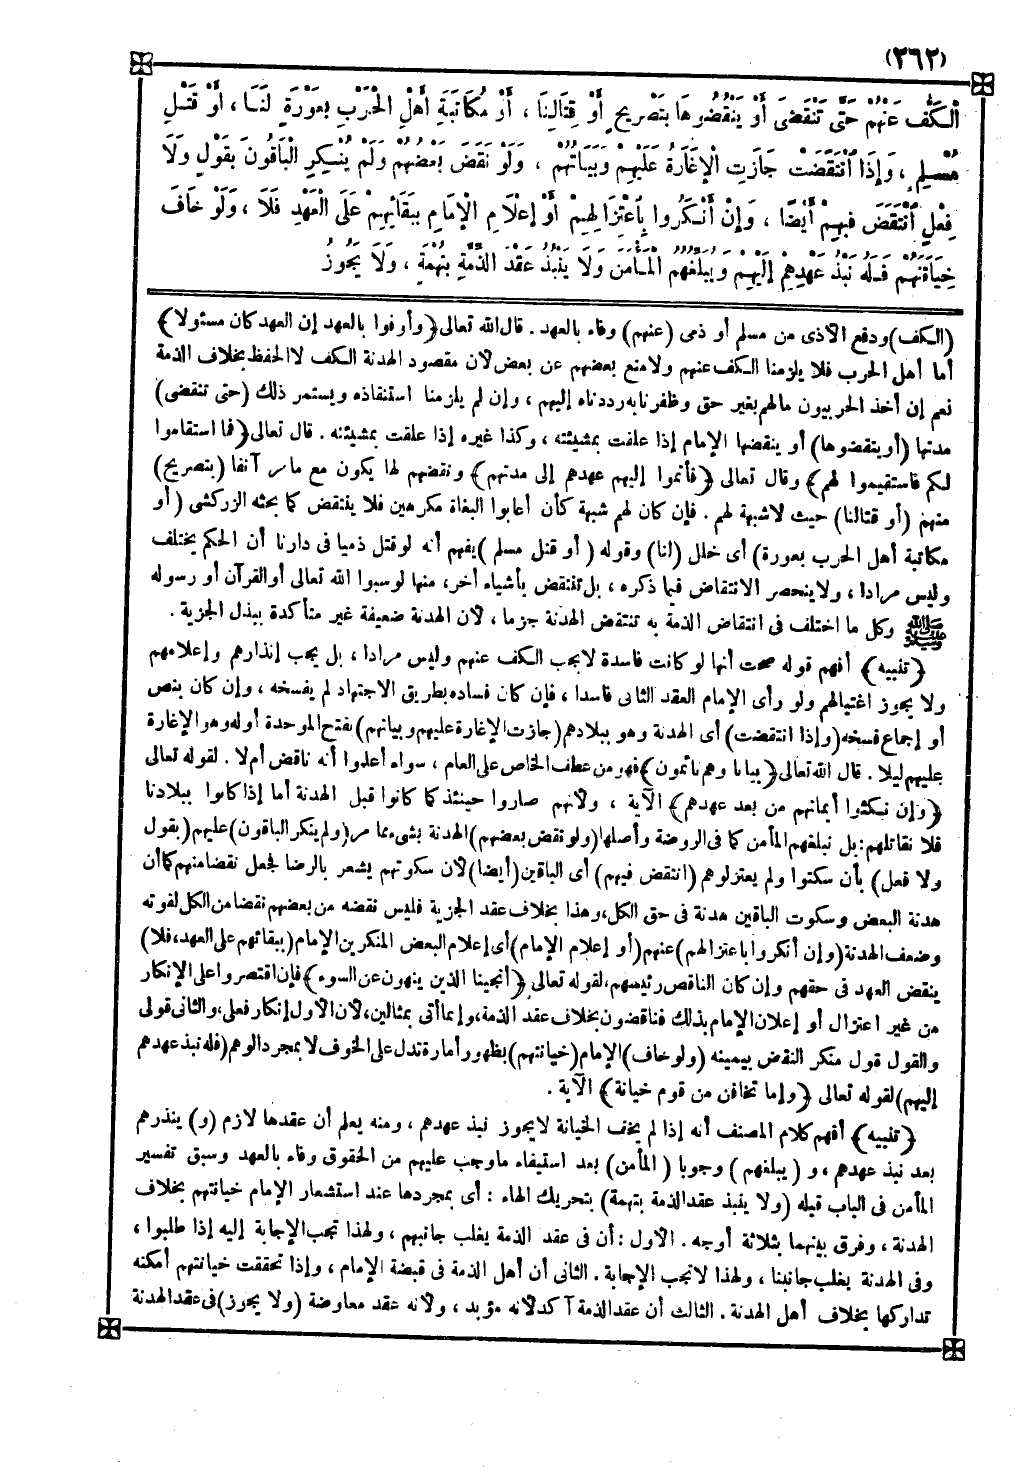 (٢٦٢)
الْكَفُّ عَنْهُمْ حَتَّى تَنْقَضِىَ أَوْ يَنْقُضُوهَا بِتَصْرِيحٍ أَوْ قِتَالِنَا ، أَوْ مُكَاتَبَةِ أَهْلِ الْحَرْبِ بِعَوْرَةٍ لَنَا ، أَوْ قَتْلِ
مُسْلِمٍ ، وَإِذَا انْتَقَضَتْ جَازَتِ الْإِغَارَةُ عَلَيْهِمْ وَبَيَاتُهُمْ ، وَلَوْ نَقَضَ بَعْضُهُمْ وَلَمْ يُنْكِرِ الْبَاقُونَ بِقَوْلٍ وَلَا
فِعْلٍ انْتَقَضَ فِيهِمْ أَيْضًا ، وَإِنْ أَنْكَرُوا بِاعْتِزَالِهِمْ أَوْ إِعْلَامِ الْإِمَامِ بِبَقَائِهِمْ عَلَى الْعَهْدِ فَلَا ، وَلَوْ خَافَ
خِيَانَتَهُمْ فَلَهُ نَبْذُ عَهْدِهِمْ إِلَيْهِمْ وَيُبَلِّغُهُمُ الْمَأْمَنَ وَلَا يَنْبِذُ عَقْدَ الذِّمَّةِ بِتُهْمَةٍ ، وَلَا يَجُوزُ
(الكف) ودفع الأذى من مسلم أو ذمى (عنهم) وفاء بالعهد . قال الله تعالى ﴿وأوفوا بالعهد إن العهد كان مسئولا﴾
أما أهل الحرب فلا يلزمنا الكف عنهم ولا منع بعضهم عن بعض لأن مقصود الهدنة الكف لا الحفظ بخلاف الذمة
نعم إن أخذ الحربيون مالهم بغير حق وظفرنا به رددناه إليهم ، وإن لم يلزمنا استنقاذه ويستمر ذلك (حتى تنقضى)
مدتها (أو ينقضوها) أو ينقضها الإمام إذا علقت بمشيئته ، وكذا غيره إذا علقت بمشيئته . قال تعالى ﴿فما استقاموا
لكم فاستقيموا لهم﴾ وقال تعالى ﴿فأتموا إليهم عهدهم إلى مدتهم﴾ ونقضهم لها يكون مع مامر آنفا (بتصريح)
منهم (أو قتالنا) حيث لاشبهة لهم . فإن كان لهم شبهة كأن أعانوا البغاة مكرهين فلا ينتقض كما بحثه الزركشى (أو
مكاتبة أهل الحرب بعورة) أى خلل (لنا) وقوله (أو قتل مسلم) يفهم أنه لو قتل ذميا فى دارنا أن الحكم يختلف
وليس مرادا ، ولا ينحصر الانتقاض فيما ذكره ، بل تنتقض بأشياء أخر، منها لو سبوا الله تعالى أو القرآن أو رسوله
ﷺ وكل ما اختلف فى انتقاض الذمة به تنتقض الهدنة جزما ، لأن الهدنة ضعيفة غير متأكدة ببذل الجزية .
﴿تنبيه﴾ أفهم قوله صحت أنها لو كانت فاسدة لايجب الكف عنهم وليس مرادا ، بل يجب إنذارهم وإعلامهم
ولا يجوز اغتيالهم ولو رأى الإمام العقد الثانى فاسدا ، فإن كان فساده بطريق الاجتهاد لم يفسخه ، وإن كان بنص
أو إجماع فسخه (وإذا انتقضت) أى الهدنة وهو ببلادهم (جازت الإغارة عليهم وبياتهم) بفتح الموحدة أوله وهو الإغارة
عليهم ليلا . قال الله تعالى ﴿بياتا وهم نائمون﴾ فهو من عطف الخاص على العام ، سواء أعلموا أنه ناقض أم لا . لقوله تعالى
﴿وإن نكثوا أيمانهم من بعد عهدهم﴾ الآية ، ولأنهم صاروا حينئذ كما كانوا قبل الهدنة أما إذا كانوا ببلادنا
فلا نقاتلهم: بل نبلغهم المأمن كما فى الروضة وأصلها (ولو نقض بعضهم) الهدنة بشىء مما مر (ولم ينكر الباقون) عليهم (بقول
ولا فعل) بأن سكتوا ولم يعتزلوهم (انتقض فيهم) أى الباقين (أيضا) لأن سكوتهم يشعر بالرضا فجعل نقضا منهم كما أن
هدنة البعض وسكوت الباقين هدنة فى حق الكل، وهذا بخلاف عقد الجزية فليس نقضه من بعضهم نقضا من الكل لقوته
وضعف الهدنة (وإن أنكروا باعتزالهم) عنهم (أو إعلام الإمام) أى إعلام البعض المنكرين الإمام (ببقائهم على العهد، فلا)
ينقض العهد فى حقهم وإن كان الناقض رئيسهم، لقوله تعالى ﴿أنجينا الذين ينهون عن السوء﴾ فإن اقتصروا على الإنكار
من غير اعتزال أو إعلان الإمام بذلك فناقضون بخلاف عقد الذمة، وإنما أتى بمثالين، لأن الأول إنكار فعلى، والثانى قولى
والقول قول منكر النقض بيمينه (ولو خاف) الإمام (خيانتهم) بظهور أمارة تدل على الخوف لا بمجرد الوهم (فله نبذ عهدهم
إليهم) لقوله تعالى ﴿وإما تخافن من قوم خيانة﴾ الآية .
﴿تنبيه﴾ أفهم كلام المصنف أنه إذا لم يخف الخيانة لايجوز نبذ عهدهم ، ومنه يعلم أن عقدها لازم (و) ينذرهم
بعد نبذ عهدهم ، و (يبلغهم) وجوبا (المأمن) بعد استيفاء ماوجب عليهم من الحقوق وفاء بالعهد وسبق تفسير
المأمن فى الباب قبله (ولا ينبذ عقد الذمة بتهمة) بتحريك الهاء : أى بمجردها عند استشعار الإمام خيانتهم بخلاف
الهدنة ، وفرق بينهما بثلاثة أوجه . الأول : أن فى عقد الذمة يغلب جانبهم ، ولهذا تجب الإجابة إليه إذا طلبوا ،
وفى الهدنة يغلب جانبنا ، ولهذا لاتجب الإجابة . الثانى أن أهل الذمة فى قبضة الإمام ، وإذا تحققت خيانتهم أمكنه
تداركها بخلاف أهل الهدنة . الثالث أن عقد الذمة آكد لأنه مؤبد ، ولأنه عقد معاوضة (ولا يجوز) فى عقد الهدنة